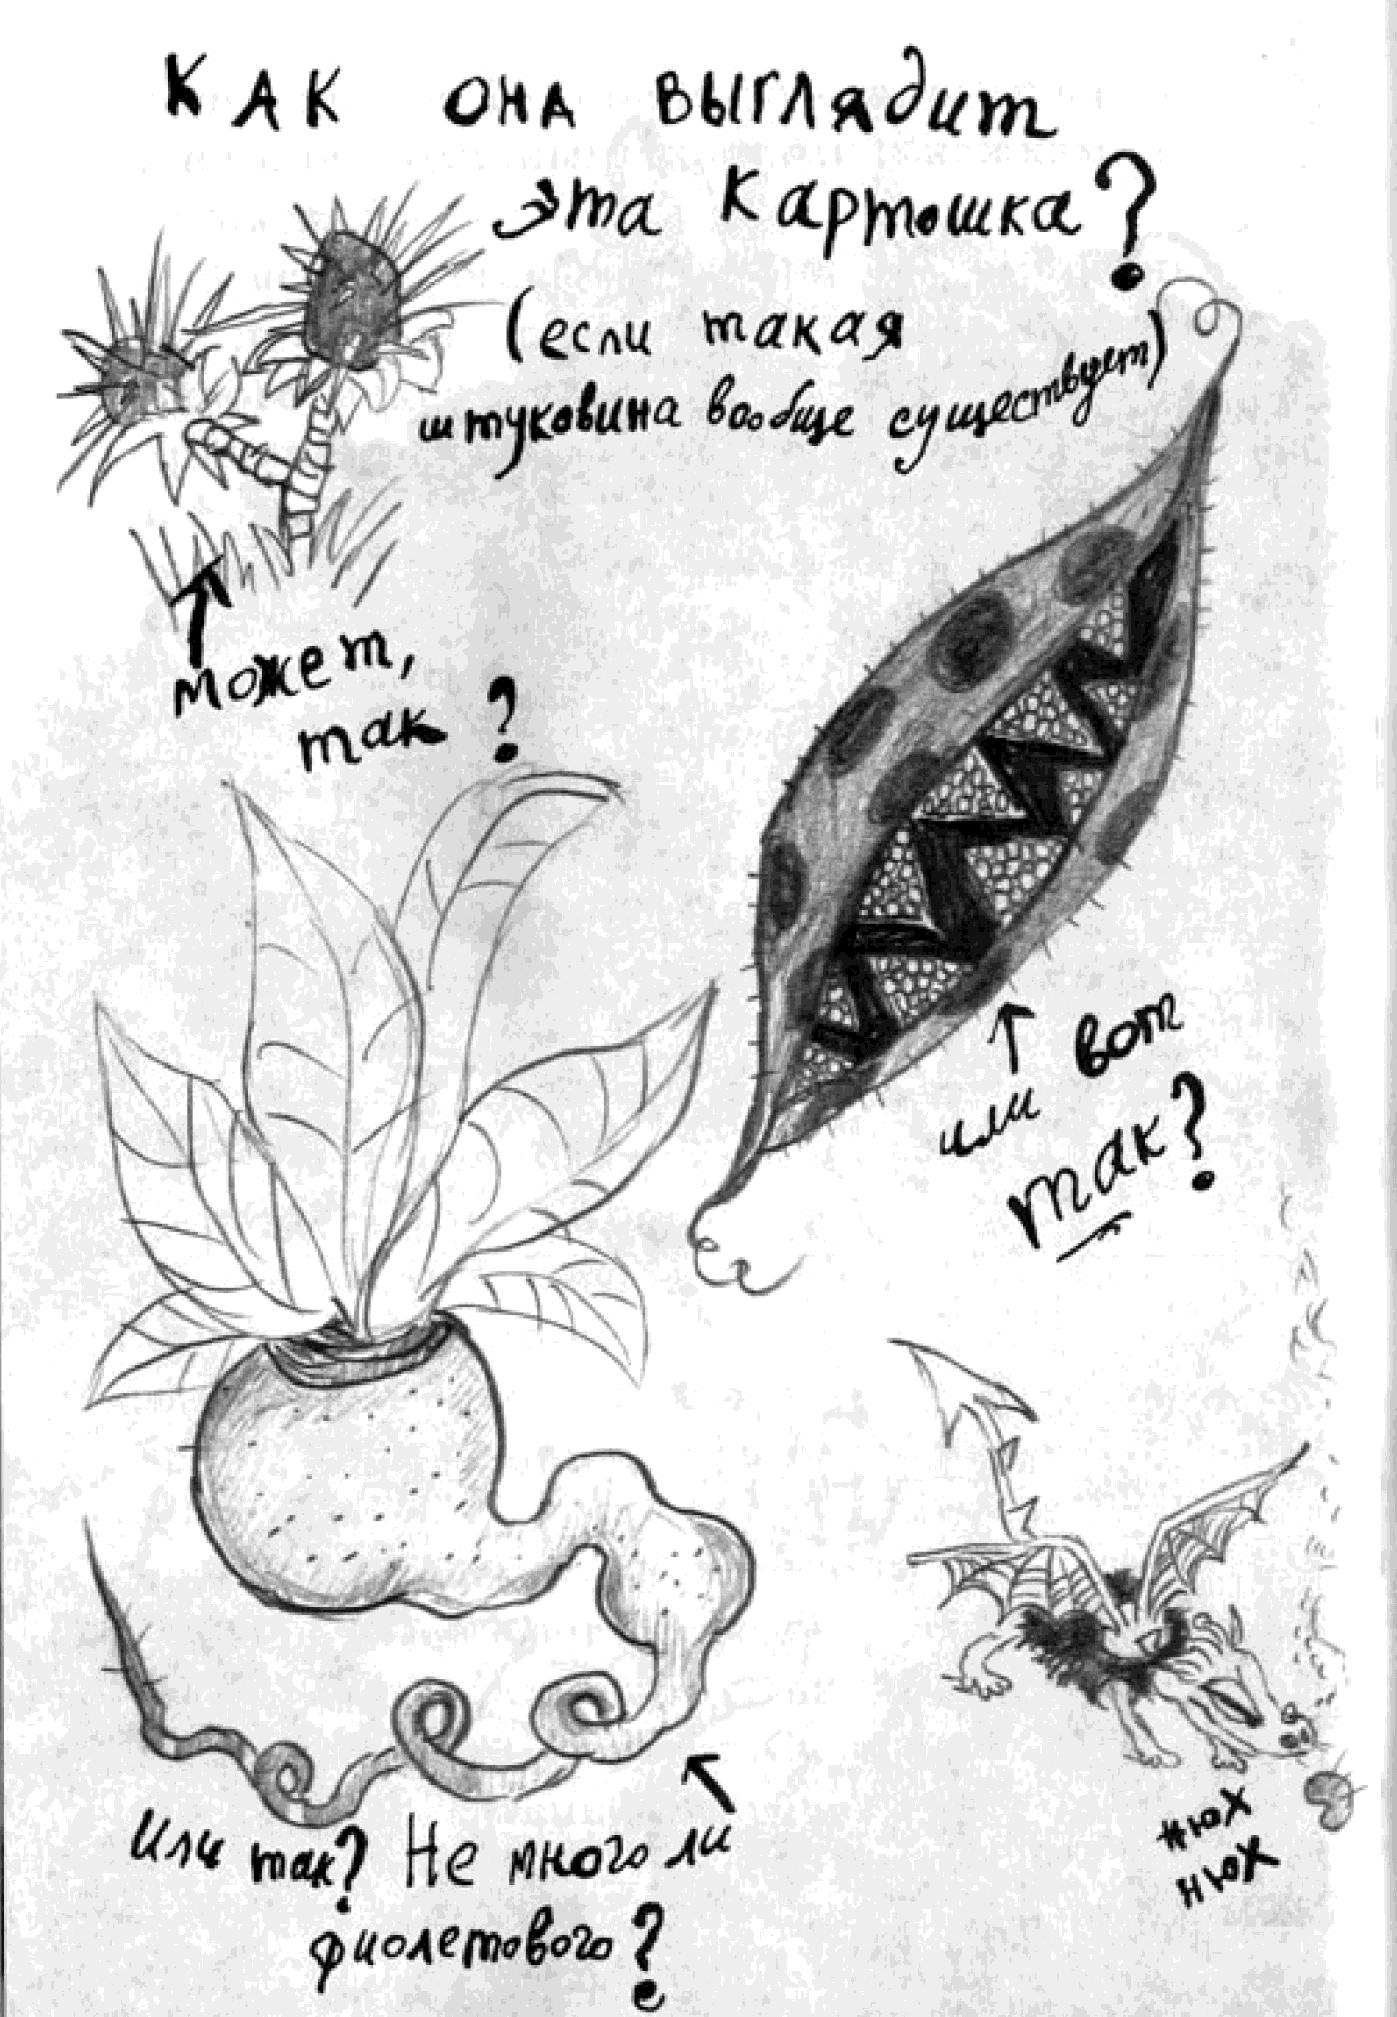 КАК ОНА ВЫГЛЯДИТ
ЭТА КАРТОШКА?
(если такая
штуковина вообще существует)
может,
так?
или вот
так?
Или так? Не много ли
фиолетового?
нюх
нюх